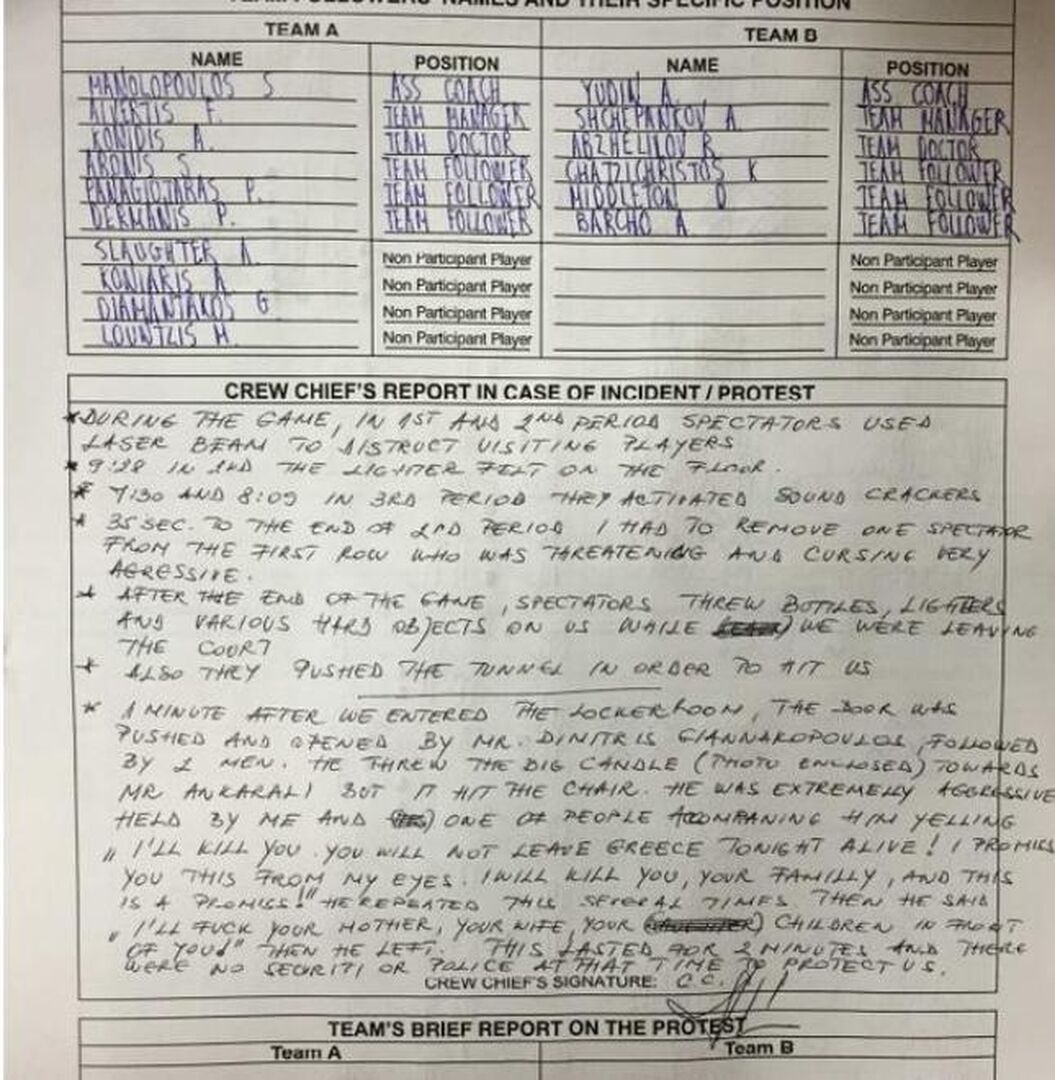 TEAM FOLLOWERS' NAMES AND THEIR SPECIFIC POSITION
TEAM A TEAM B
NAME POSITION NAME POSITION
MANOLOPOULOS S ASS COACH YUDIN A. ASS COACH
ALVERTIS F. TEAM MANAGER SHCHEPANKOV A TEAM MANAGER
KONIDIS A. TEAM DOCTOR ABZHELILOV R TEAM DOCTOR
ARONIS S. TEAM FOLLOWER CHATZICHRISTOS K TEAM FOLLOWER
PANAGIOTARAS P. TEAM FOLLOWER MIDDLETON D TEAM FOLLOWER
DERMANIS P. TEAM FOLLOWER BARCHO A TEAM FOLLOWER
SLAUGHTER A. Non Participant Player Non Participant Player
KONIARIS A Non Participant Player Non Participant Player
DIAMANTAKOS G Non Participant Player Non Participant Player
LOUNTZIS M. Non Participant Player Non Participant Player
CREW CHIEF'S REPORT IN CASE OF INCIDENT / PROTEST
* DURING THE GAME, IN 1ST AND 2ND PERIOD SPECTATORS USED
LASER BEAM TO DISTRUCT VISITING PLAYERS
* 9:28 IN 2ND THE LIGHTER FELT ON THE FLOOR.
* 7:30 AND 8:09 IN 3RD PERIOD THEY ACTIVATED SOUND CRACKERS
* 35 SEC. TO THE END OF 2ND PERIOD I HAD TO REMOVE ONE SPECTATOR
FROM THE FIRST ROW WHO WAS THREATENING AND CURSING VERY
AGRESSIVE.
* AFTER THE END OF THE GAME, SPECTATORS THREW BOTTLES, LIGHTERS
AND VARIOUS HARD OBJECTS ON US WHILE WE WERE LEAVING
THE COURT
* ALSO THEY PUSHED THE TUNNEL IN ORDER TO HIT US
* 1 MINUTE AFTER WE ENTERED THE LOCKERROOM, THE DOOR WAS
PUSHED AND OPENED BY MR. DIMITRIS GIANNAKOPOULOS, FOLLOWED
BY 2 MEN. HE THREW THE BIG CANDLE (PHOTO ENCLOSED) TOWARDS
MR ANKARALI BUT IT HIT THE CHAIR. HE WAS EXTREMELY AGGRESSIVE
HELD BY ME AND ONE OF PEOPLE ACOMPANING HIM YELLING
„ I'LL KILL YOU. YOU WILL NOT LEAVE GREECE TONIGHT ALIVE! I PROMISE
YOU THIS FROM MY EYES. I WILL KILL YOU, YOUR FAMILLY, AND THIS
IS A PROMISS!" HE REPEATED THIS SEVERAL TIMES THEN HE SAID
„ I'LL FUCK YOUR MOTHER, YOUR WIFE, YOUR CHILDREN IN FRONT
OF YOU!" THEN HE LEFT. THIS LASTED FOR 2 MINUTES AND THERE
WERE NO SECURITI OR POLICE AT THAT TIME TO PROTECT US.
CREW CHIEF'S SIGNATURE: C.C.
TEAM'S BRIEF REPORT ON THE PROTEST
Team A Team B